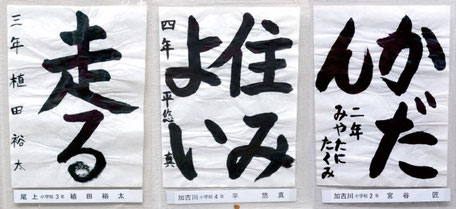 走る
三年 植田裕太
尾上小学校3年 植田裕太
住み
よい
四年 平悠真
加古川小学校4年 平 悠真
かだ
ん
二年
みやたに
たくみ
加古川小学校2年 宮谷 匠